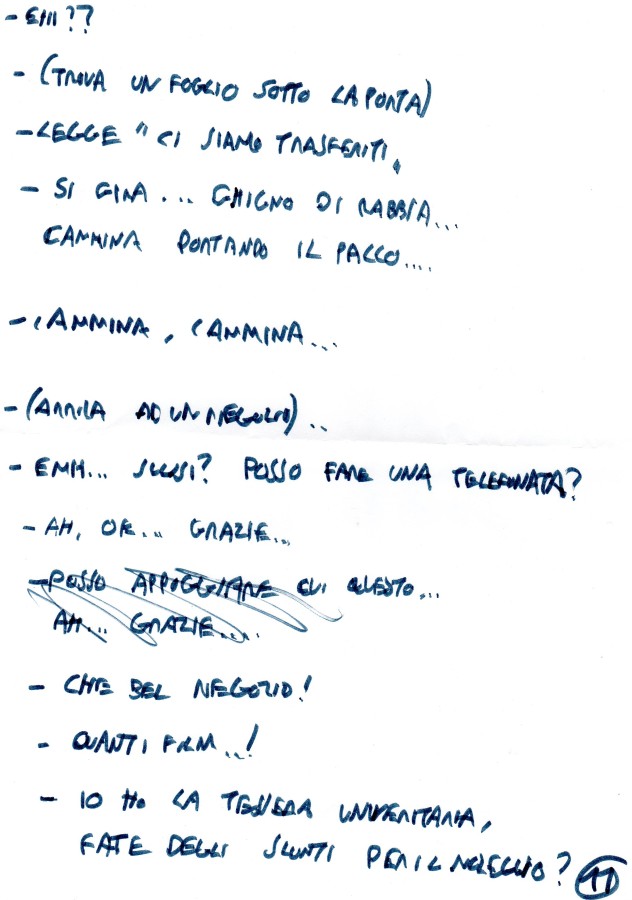 - EHI??
- (TROVA UN FOGLIO SOTTO LA PORTA)
- LEGGE " CI SIAMO TRASFERITI.
- SI GIRA... GHIGNO DI RABBIA...
CAMMINA PORTANDO IL PACCO....
- CAMMINA, CAMMINA...
- (ARRIVA AD UN NEGOZIO)..
- EMH... SCUSI? POSSO FARE UNA TELEFONATA?
- AH, OK... GRAZIE...
- POSSO APPOGGIARE QUI QUESTO...
AH... GRAZIE....
- CHE BEL NEGOZIO!
- QUANTI FILM...!
- IO HO LA TESSERA UNIVERSITARIA,
FATE DEGLI SCONTI PER IL NOLEGGIO? 11